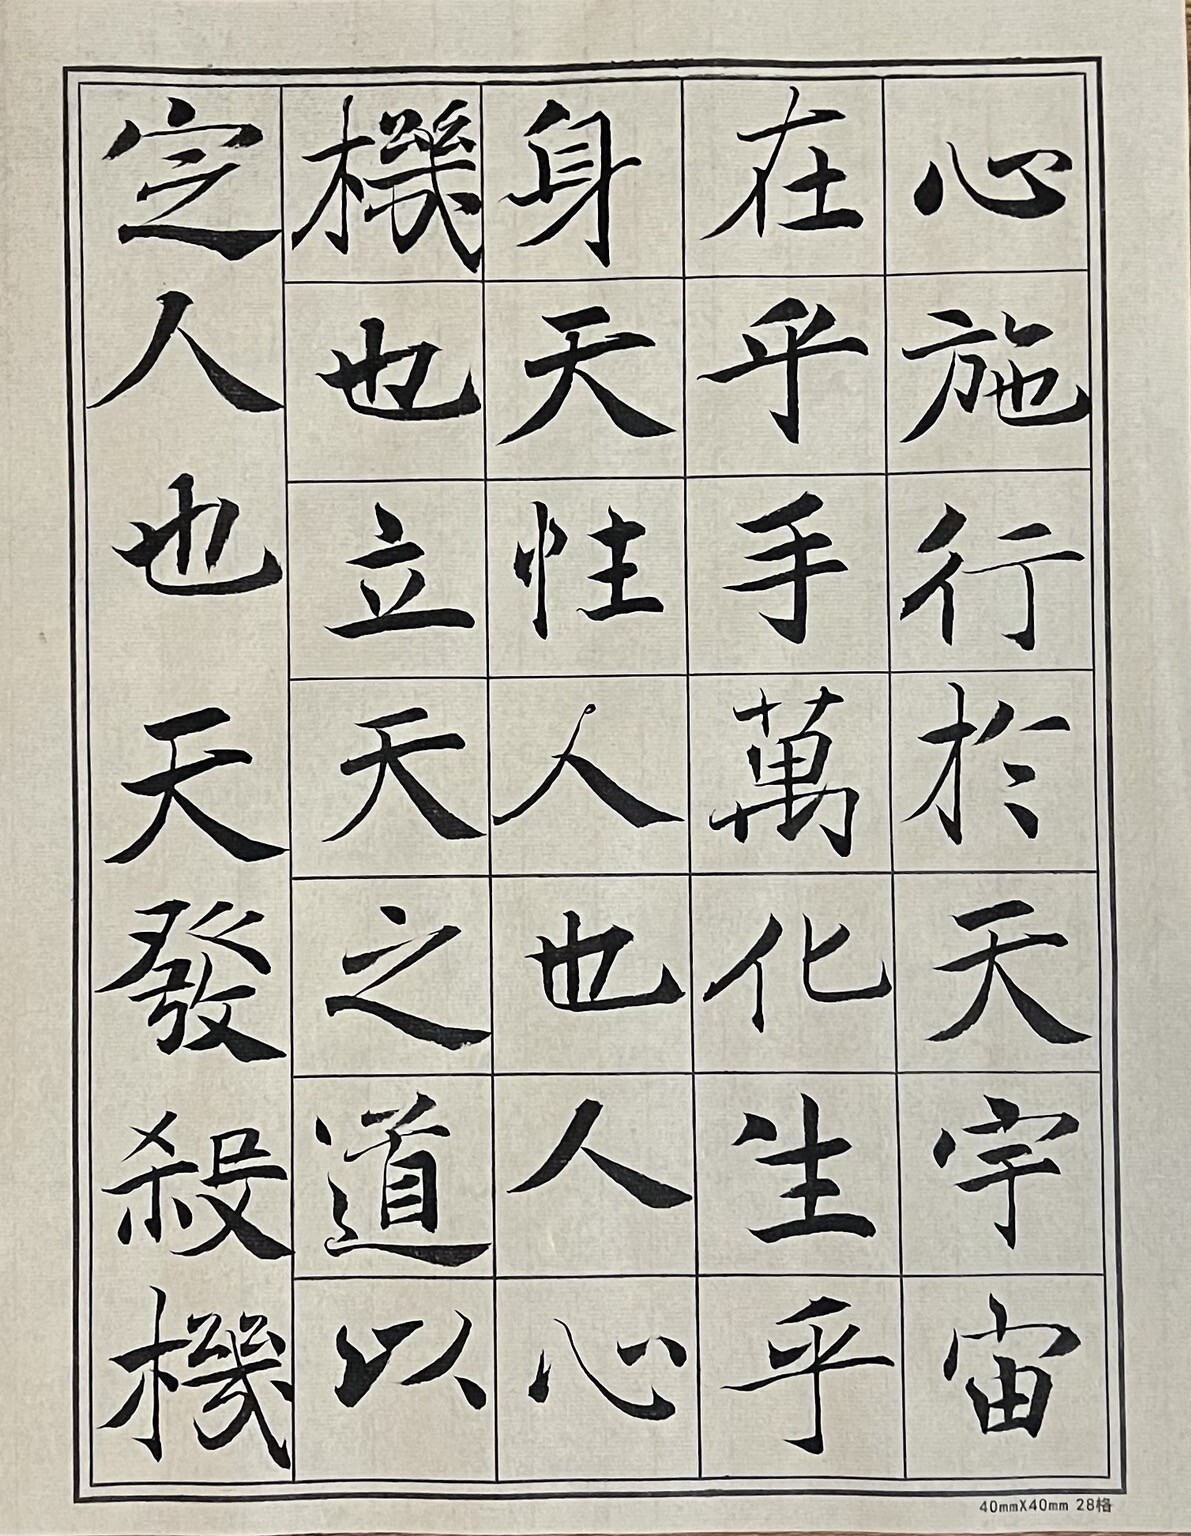 心施行於天宇宙
在乎手萬化生乎
身天性人也人心
機也立天之道以
定人也天發殺機
40mmX40mm 28格